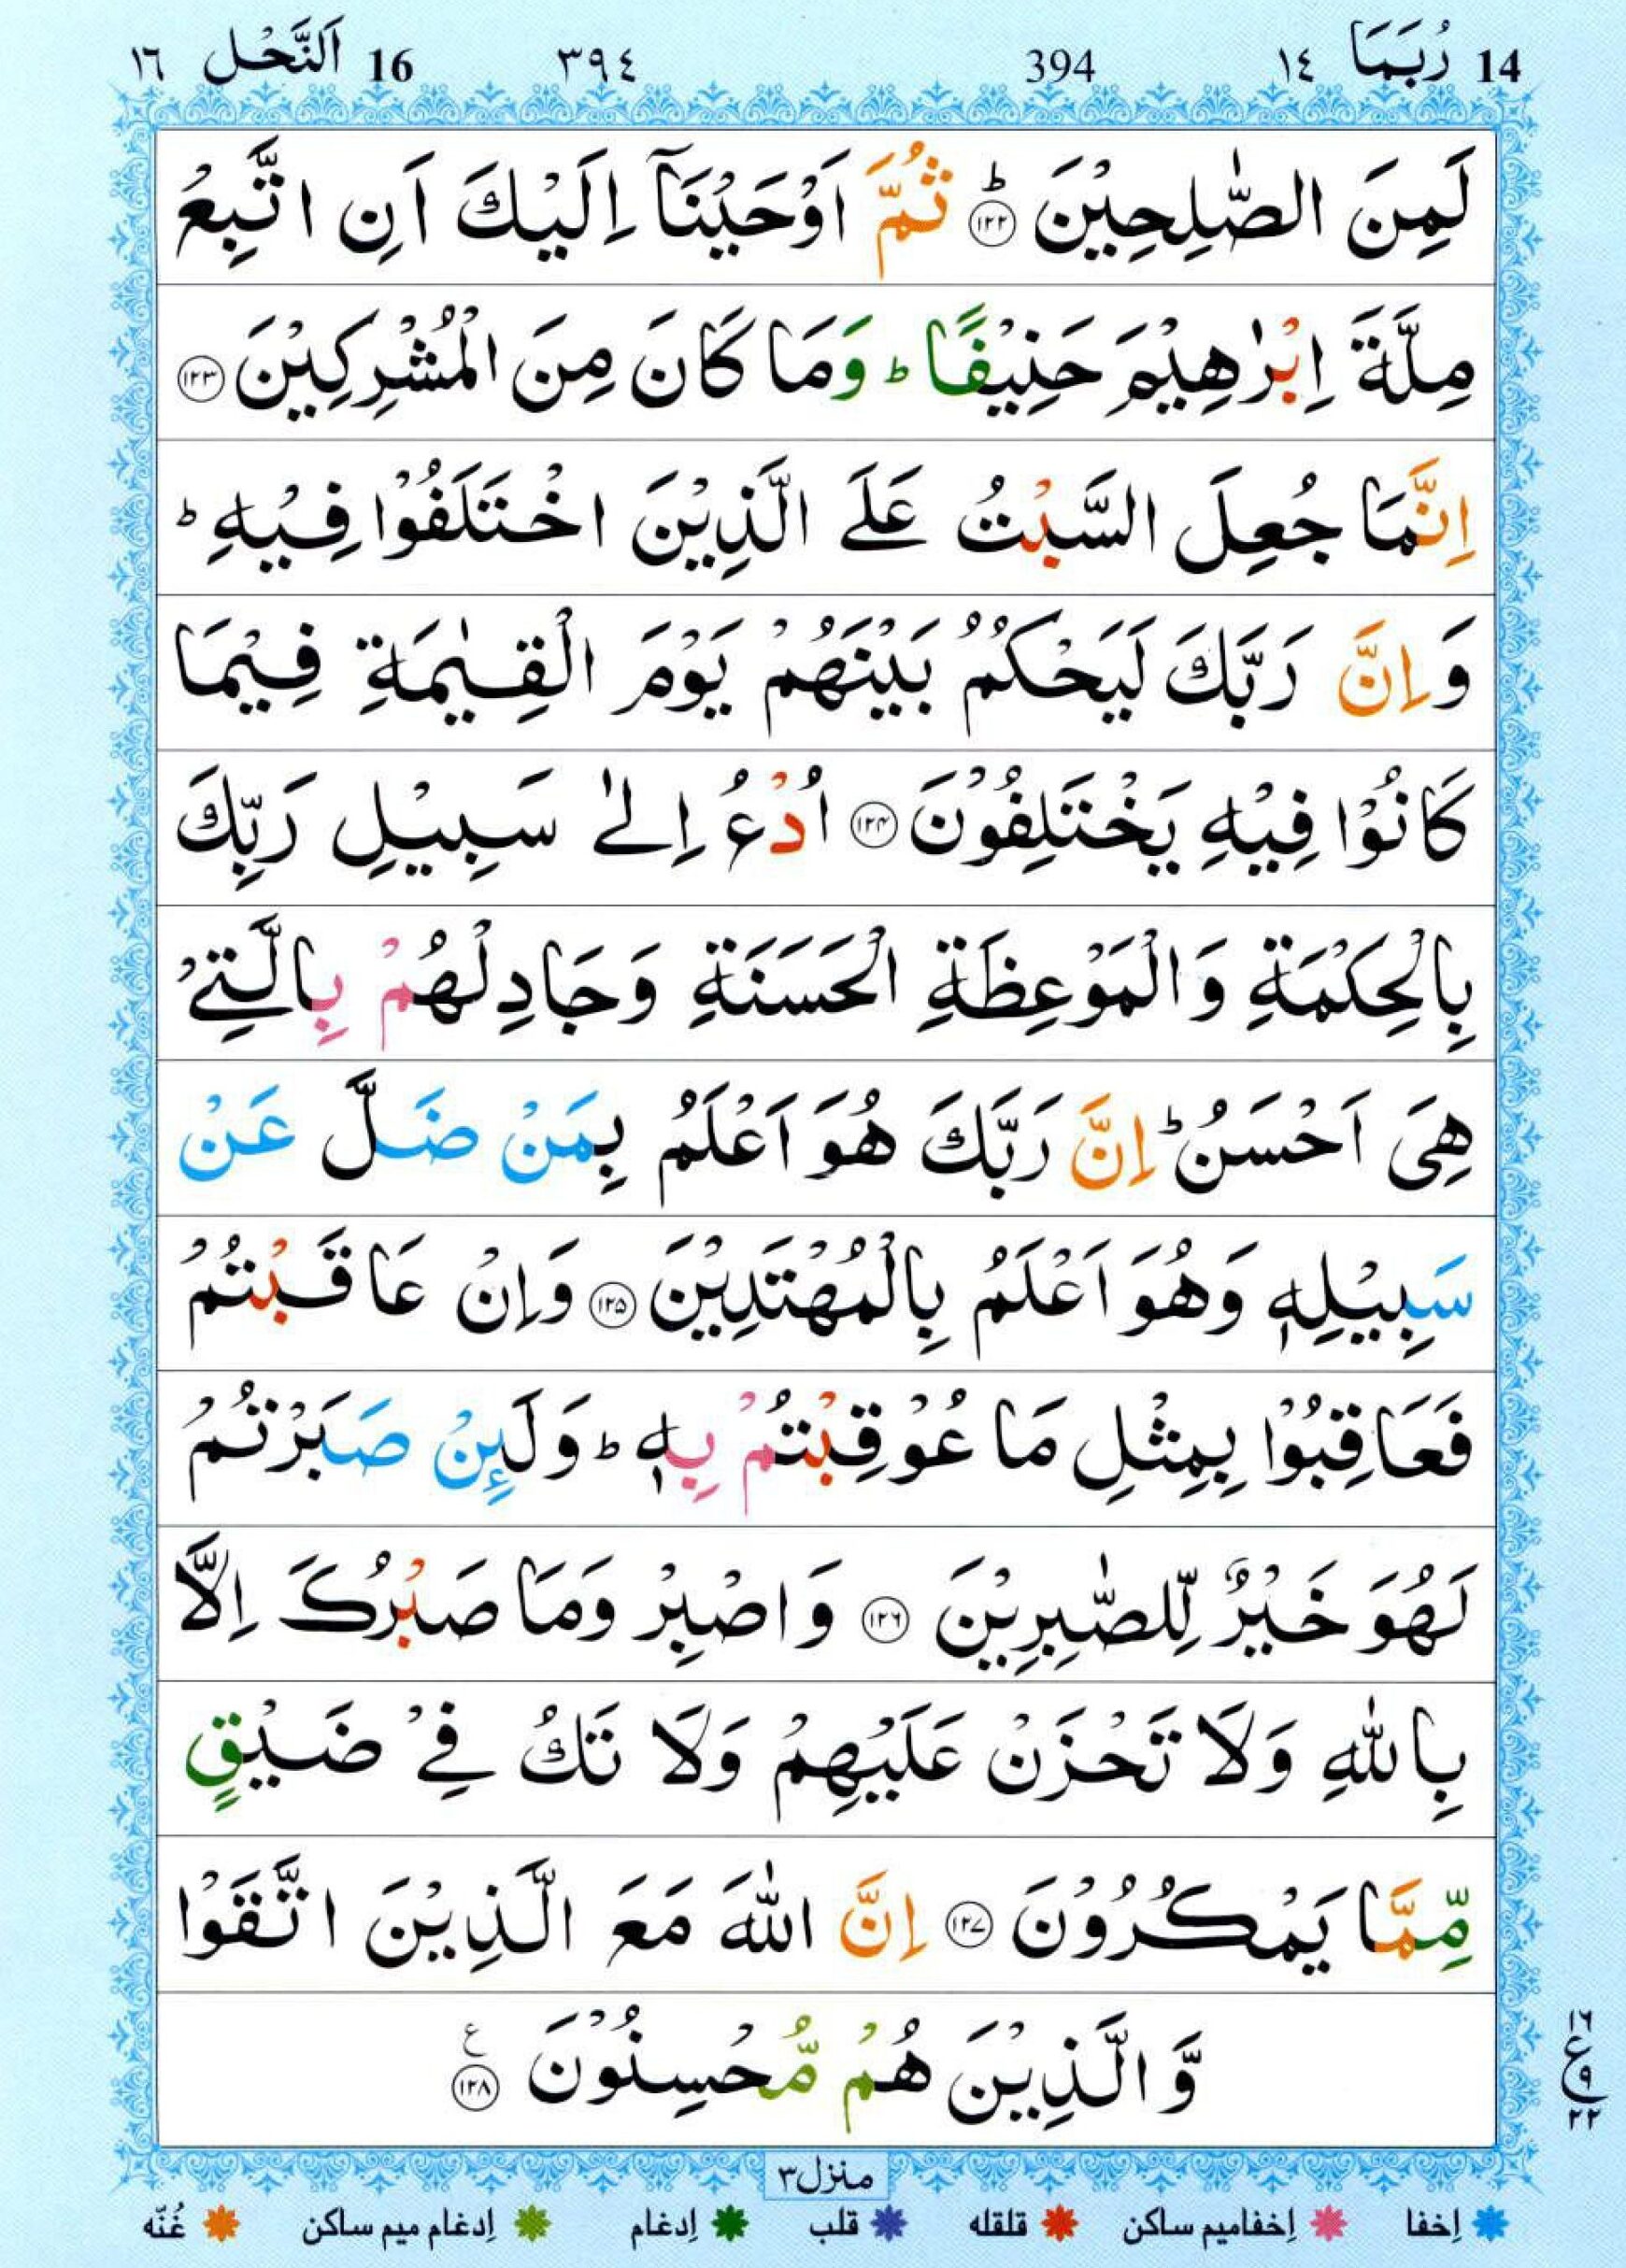 14 رُبَمَا ١٤ 394 ٣٩٤ 16 اَلنَّحْل ١٦
لَمِنَ الصّٰلِحِيْنَ ؕ ﴿۱۲۲﴾ ثُمَّ اَوْحَيْنَاۤ اِلَيْكَ اَنِ اتَّبِعْ
مِلَّةَ اِبْرٰهِيْمَ حَنِيْفًا ؕ وَمَا كَانَ مِنَ الْمُشْرِكِيْنَ ﴿۱۲۳﴾
اِنَّمَا جُعِلَ السَّبْتُ عَلَى الَّذِيْنَ اخْتَلَفُوْا فِيْهِ ؕ
وَاِنَّ رَبَّكَ لَيَحْكُمُ بَيْنَهُمْ يَوْمَ الْقِيٰمَةِ فِيْمَا
كَانُوْا فِيْهِ يَخْتَلِفُوْنَ ﴿۱۲۴﴾ اُدْعُ اِلٰى سَبِيْلِ رَبِّكَ
بِالْحِكْمَةِ وَالْمَوْعِظَةِ الْحَسَنَةِ وَجَادِلْهُمْ بِالَّتِيْ
هِيَ اَحْسَنُ ؕ اِنَّ رَبَّكَ هُوَ اَعْلَمُ بِمَنْ ضَلَّ عَنْ
سَبِيْلِهٖ وَهُوَ اَعْلَمُ بِالْمُهْتَدِيْنَ ﴿۱۲۵﴾ وَاِنْ عَاقَبْتُمْ
فَعَاقِبُوْا بِمِثْلِ مَا عُوْقِبْتُمْ بِهٖ ؕ وَلَىِٕنْ صَبَرْتُمْ
لَهُوَ خَيْرٌ لِّلصّٰبِرِيْنَ ﴿۱۲۶﴾ وَاصْبِرْ وَمَا صَبْرُكَ اِلَّا
بِاللّٰهِ وَلَا تَحْزَنْ عَلَيْهِمْ وَلَا تَكُ فِيْ ضَيْقٍ
مِّمَّا يَمْكُرُوْنَ ﴿۱۲۷﴾ اِنَّ اللّٰهَ مَعَ الَّذِيْنَ اتَّقَوْا
وَّالَّذِيْنَ هُمْ مُّحْسِنُوْنَ ﴿۱۲۸﴾ ع
١٦
ع
٩
٢٢
منزل٣
اِخفا اِخفامیم ساکن قلقله قلب اِدغام اِدغام میم ساکن غُنّه